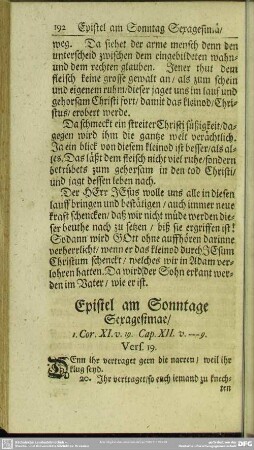 192 Epistel am Sonntag Sexagesimä/
weg. Da siehet der arme mensch denn den
unterscheid zwischen dem eingebildeten wahn-
und dem rechten glauben. Jener thut dem
fleisch keine grosse gewalt an/ als zum schein
und eigenem ruhm/ dieser jaget uns im lauf und
gehorsam Christi fort/ damit das kleinod/ Chri-
stus/ erobert werde.
Da schmeckt ein streiter Christi süßigkeit/ da-
gegen wird ihm die gantze welt verächtlich.
Ja ein blick von diesem kleinod ist besser/ als al-
les. Das läßt dem fleisch nicht viel ruhe/ sondern
betrübets zum gehorsam in den tod Christi/
und jagt dessen leben nach.
Der HErr JEsus wolle uns alle in diesen
lauff bringen und bestätigen/ auch immer neue
kraft schencken/ daß wir nicht müde werden die-
ser beuthe nach zu setzen/ biß sie ergriffen ist!
Sodann wird GOtt ohne auffhören darinne
verherrlicht/ wenn er das kleinod durch JEsum
Christum schenckt/ welches wir in Adam ver-
lohren hatten. Da wird der Sohn erkant wer-
den im Vater/ wie er ist.
Epistel am Sonntage
Sexagesimae/
1. Cor. XI. v. 19. Cap. XII. v. --9.
Vers. 19.
Denn ihr vertraget gern die narren/ weil ihr
klug seyd.
20. Ihr vertraget/ so euch iemand zu knech-
ten